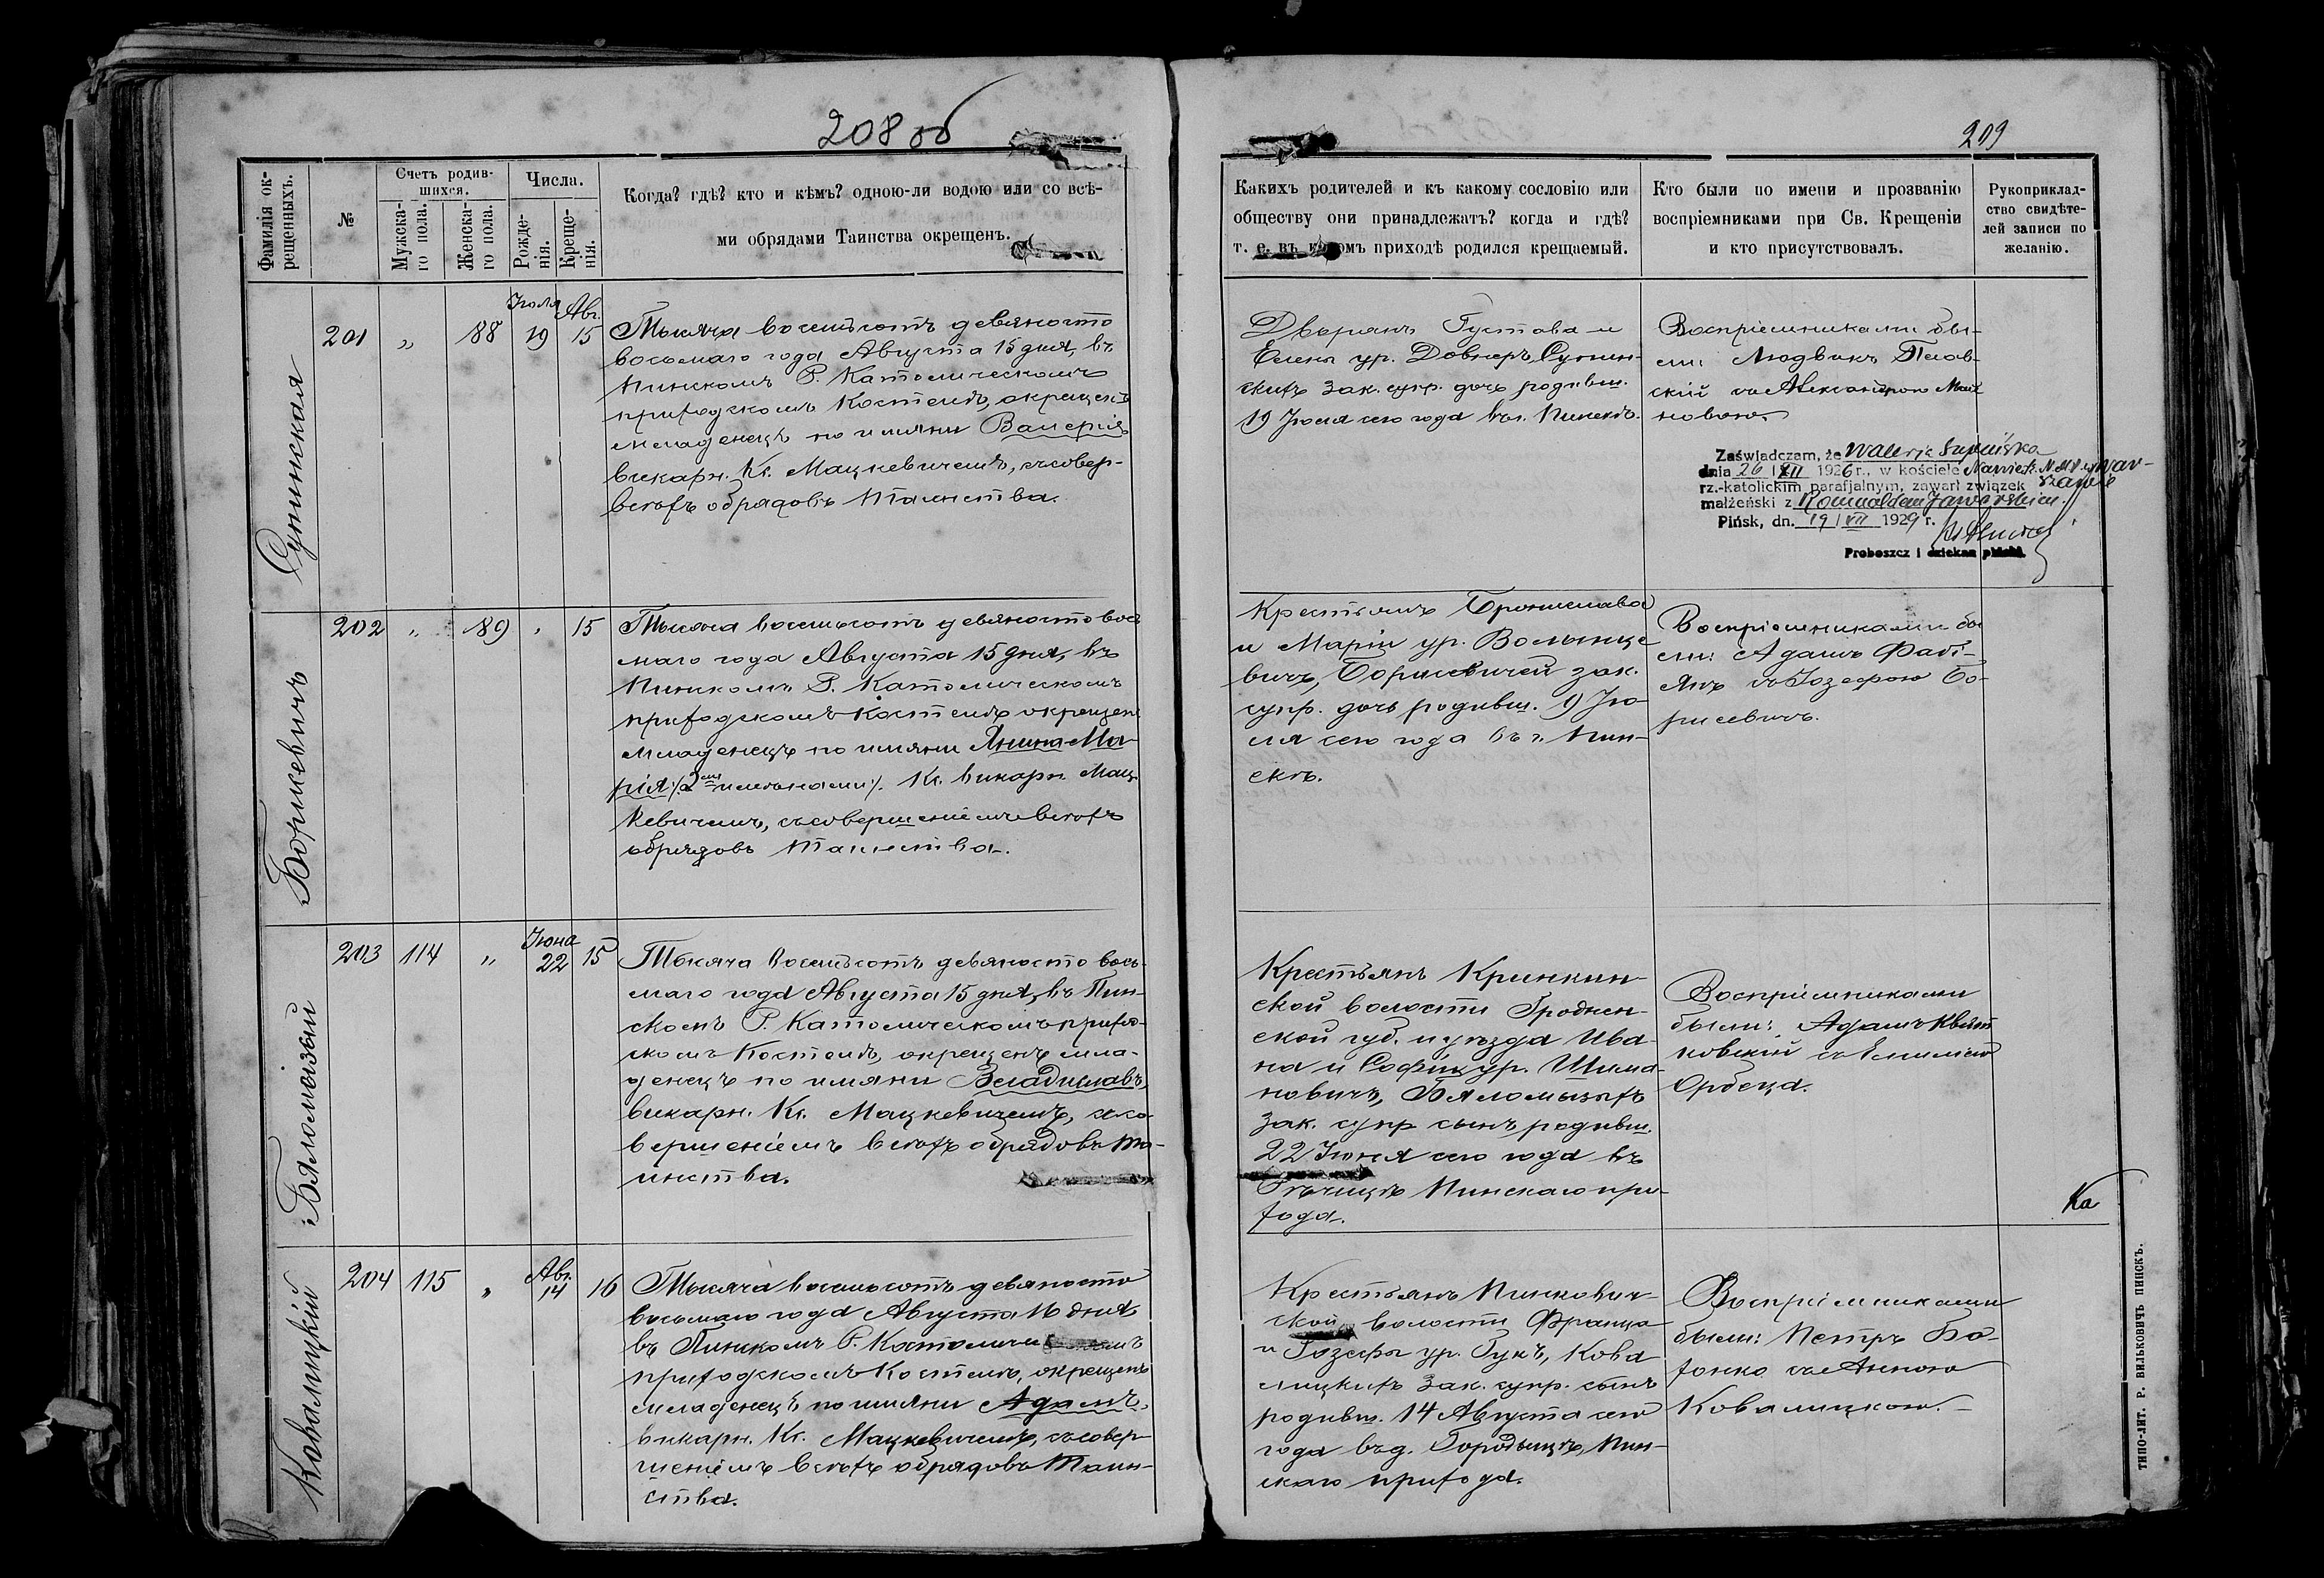 208 об
Фамилія ок-
рещенныхъ.
№
Счетъ родив-
шихся.
Мужска-
го пола.
Женска-
го пола.
Числа.
Рожде-
нія.
Креще-
нія.
Когда? гдѣ? кто и кѣмъ? одною-ли водою или со всѣ-
ми обрядами Таинства окрещенъ.
Супинская
201 „ 88 Іюля 19 Авг. 15
Тысяча восемьсотъ девяносто
восьмаго года Августа 15 дня, въ
Пинскомъ Р. Католическомъ
приходскомъ Костелѣ, окрещенъ
младенецъ по имяни Валерія,
викарн. Кс. Мацкевичемъ, съ совер-
всѣхъ обрядовъ Таинства.
Борисевичъ
202 „ 89 „ 15
Тысяча восемьсотъ девяносто вось
маго года Августа 15 дня, въ
Пинскомъ Р. Католическомъ
приходскомъ Костелѣ окрещенъ
младенецъ по имяни Янина-Ма-
рія /:2мя именами:/. Кс. викарн. Мац-
кевичемъ, съ совершеніемъ всѣхъ
обрядовъ Таинства.
Бяломызый
203 114 „ Іюня 22 15
Тысяча восемьсотъ девяносто вось-
маго года Августа 15 дня, въ Пин-
скомъ Р. Католическомъ приход-
скомъ Костелѣ, окрещенъ мла-
денецъ по имяни Владиславъ,
викарн. Кс. Мацкевичемъ, съ со-
вершеніемъ всѣхъ обрядовъ Та-
инства.
Ковалицкій
204 115 „ Авг. 14 16
Тысяча восемьсотъ девяносто
восьмаго года Августа 16 дня
въ Пинскомъ Р. Католичи
приходскомъ Костелѣ, окрещенъ
младенецъ по имяни Адамъ,
викарн. Кс. Мацкевичемъ, съ совер-
шеніемъ всѣхъ обрядовъ Таин-
ства.
209
Какихъ родителей и къ какому сословію или
обществу они принадлежатъ? когда и гдѣ?
т. е. въ комъ приходѣ родился крещаемый.
Кто были по имени и прозванію
воспріемниками при Св. Крещеніи
и кто присутствовалъ.
Рукоприклад-
ство свидѣте-
лей записи по
желанію.
Дворянъ Густава и
Елены ур. Довнаръ, Супин-
скихъ зак. супр. дочь родивш.
19 Іюля сего года въ г. Пинскѣ.
Воспріемниками бы-
ли: Людвикъ
скій съ Александрою
новою.
Zaświadczam, że Walerja Supińska
dnia 26 / XII 1926 r., w kościele Nawiedz. N.M.P. w War-
rz.-katolickim parafjalnym, zawarł związek szawie
małżeński z Romualdem Jaworskim.
Pińsk, dn. 19 / VII 1929 r.
Proboszcz i dziekan piński.
Крестьянъ Бронислава
и Маріи ур. Волынце
вичъ, Борисевичей зак.
супр. дочь родивш. 9 Ію-
ля сего года въ г. Пин-
скѣ.
Воспріемниками бы
ли: Адамъ Фабі-
янъ съ Іозефою Бо-
рисевичъ.
Крестьянъ Кринкин-
ской волости Гроднен-
ской губ. и уѣзда Ива-
на и Софіи ур. Шима-
новичъ, Бяломызыхъ
зак. супр сынъ родивш.
22 Іюня сего года въ
Пинскаго при-
хода.
Воспріемниками
были: Адамъ Квят
ковскій съ Емиліею
Орбеца.
Ка
Крестьянъ Пинкович-
ской волости Франца
и Іозефы ур. Гукъ, Кова
лицкихъ зак. супр. сынъ
родивш. 14 Августа сего
года въ д. Городищѣ, Пин-
скаго прихода.
Воспріемниками
были: Петръ Бо-
хонко съ Анною
Ковалицкою.
ТИПО-ЛИТ. Р. ВИЛЬКОВИЧЪ ПИНСКЪ.